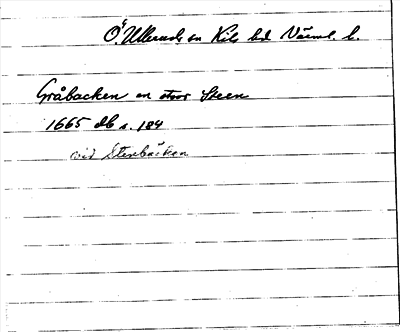 Ö. Ullerud sn Kils hd Värml. l.
Gråbacken en stoor Steen
1665 db s. 184
vid Stenbäcken